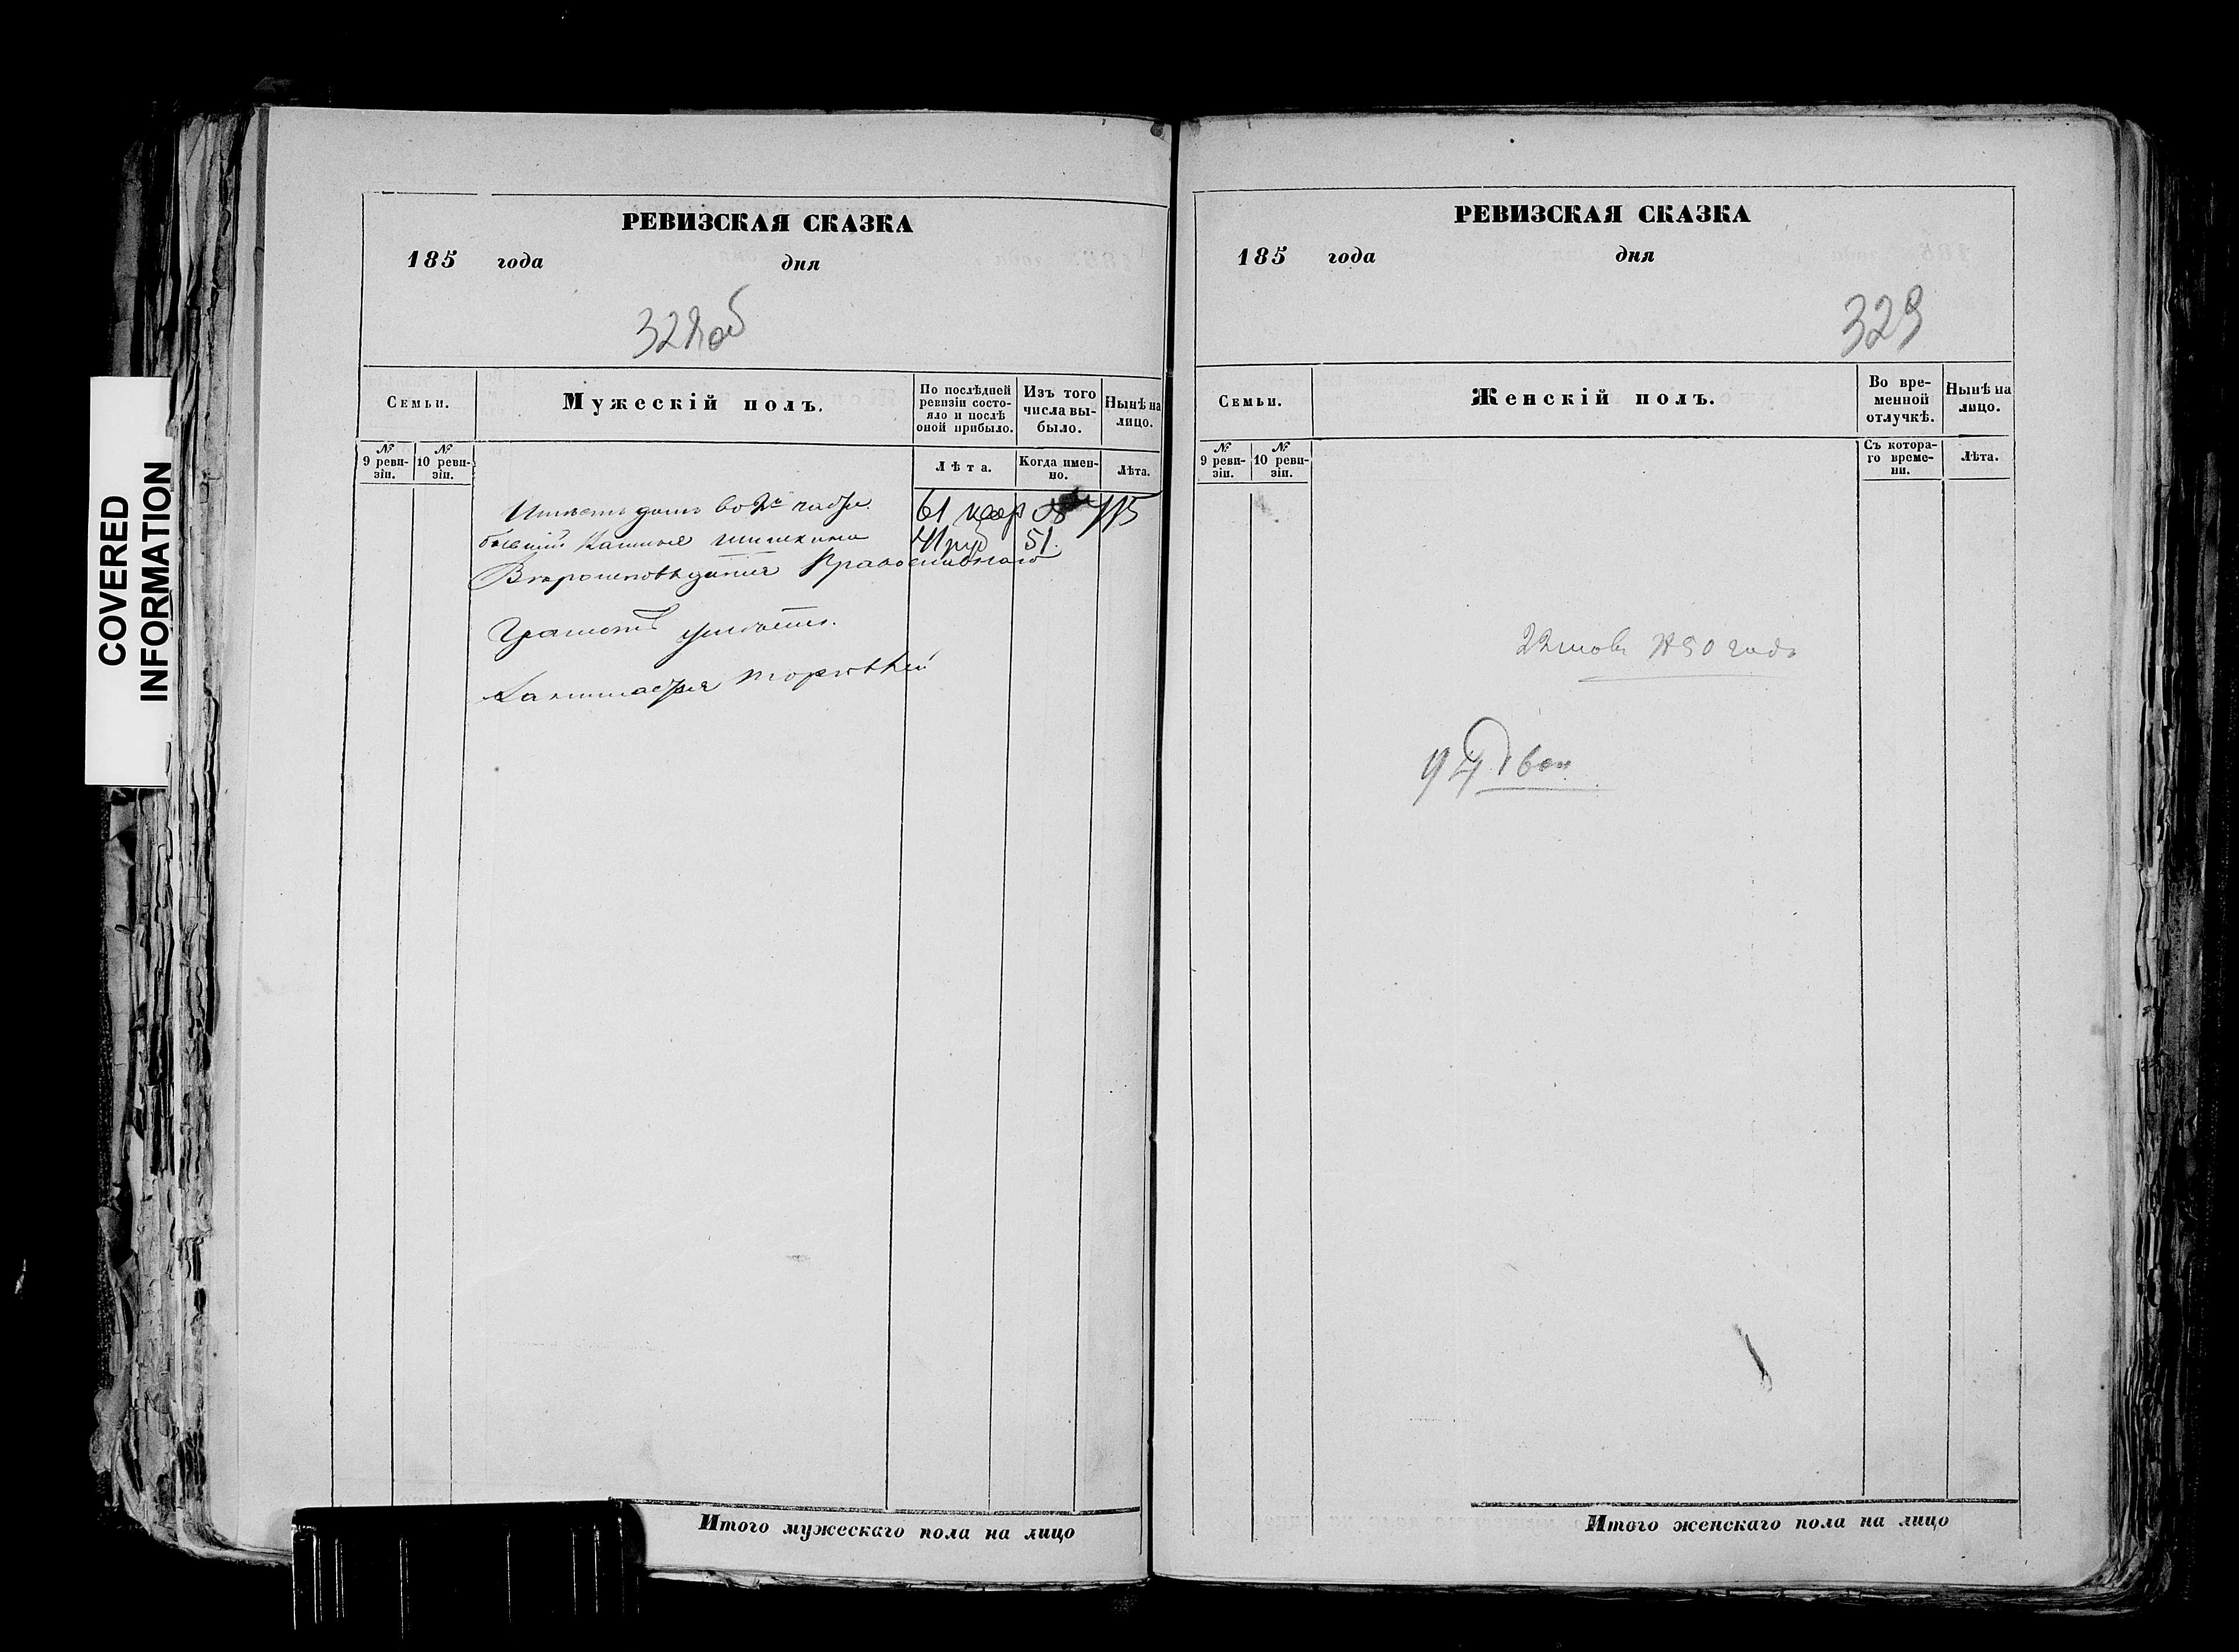 COVERED
INFORMATION
РЕВИЗСКАЯ СКАЗКА
185 года дня
328 об
Семьи.
Мужескій полъ.
По послѣдней ревизіи состояло и послѣ оной прибыло.
Изъ того числа выбыло.
Нынѣ на лицо.
№ 9 ревизіи.
№ 10 ревизіи.
Лѣта.
Когда именно.
Лѣта.
Имѣетъ домъ во 2й части
бывшій Шишкина
41 руб 51.
Вѣроисповѣданія Православнаго
Грамотѣ умѣетъ.
торговлей
РЕВИЗСКАЯ СКАЗКА
185 года дня
329
Семьи.
Женскій полъ.
Во временной отлучкѣ.
Нынѣ на лицо.
№ 9 ревизіи.
№ 10 ревизіи.
Съ котораго времени.
Лѣта.
22 1850 года
Итого мужескаго пола на лицо
Итого женскаго пола на лицо